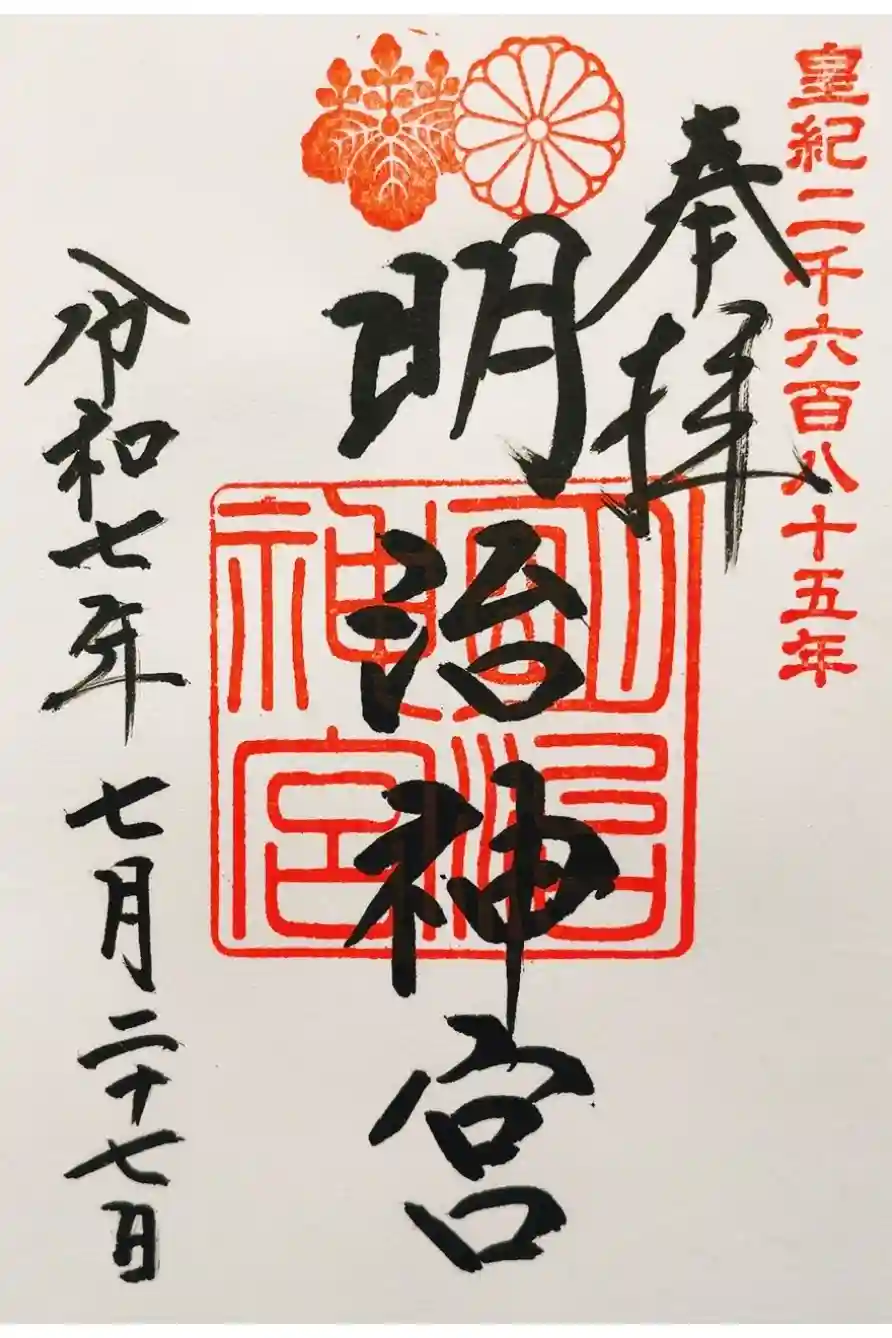 皇紀二千六百八十五年
奉拝
明治神宮
明治神宮
令和七年七月二十七日